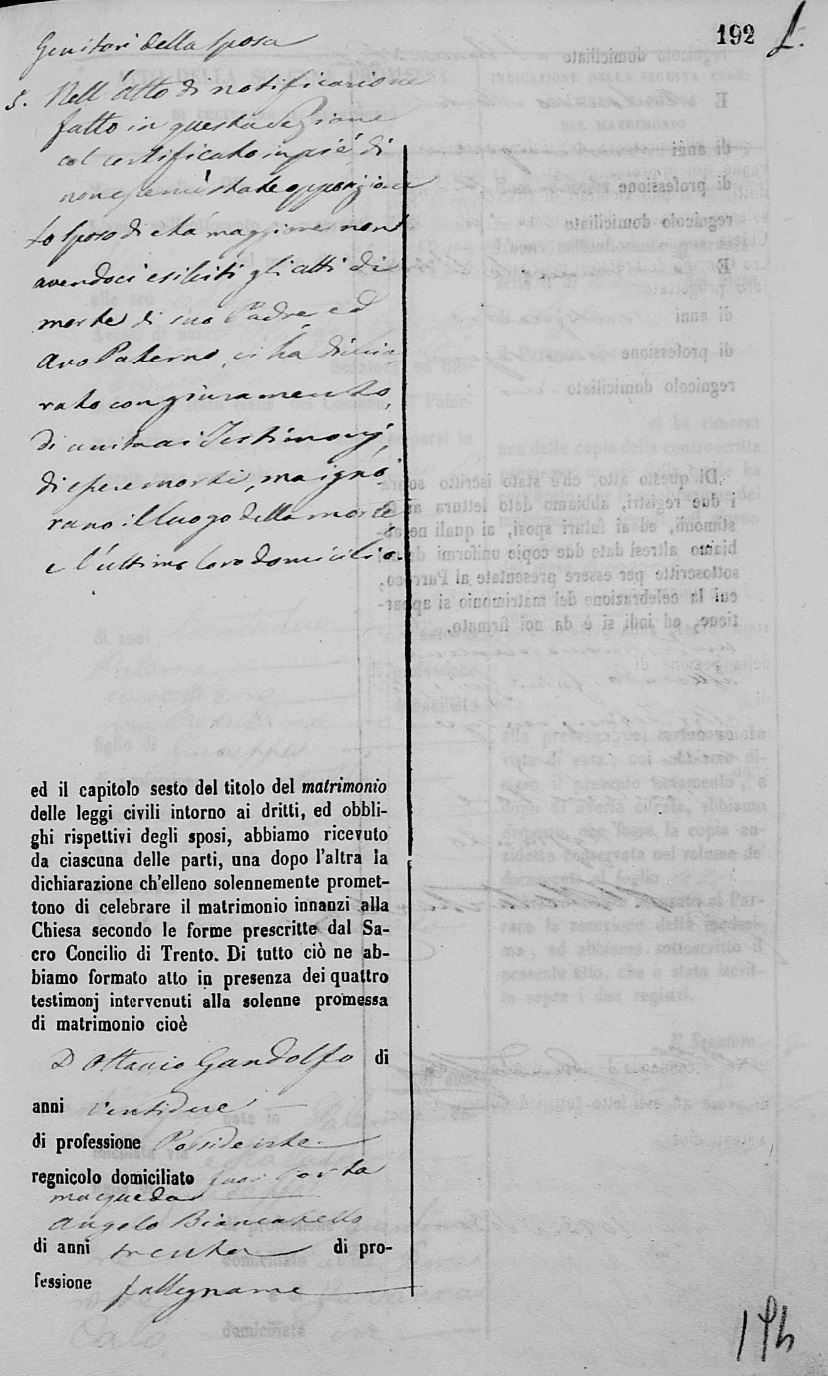 192 L.
Genitori della sposa
5. Nell'atto di notificazione
fatto in questa Sezione
col certificato in piè di
non esservi state opposizioni
Lo sposo di età maggiore non
avendoci esibiti gli atti di
morte di suo Padre ed
Avo Paterno, ci ha dichia
rato con giuramento,
di unita ai Testimonj,
di essere morti, ma igno
rano il luogo della morte
e l'ultimo loro domicilio.
ed il capitolo sesto del titolo del matrimonio
delle leggi civili intorno ai dritti, ed obbli-
ghi rispettivi degli sposi, abbiamo ricevuto
da ciascuna delle parti, una dopo l'altra la
dichiarazione ch'elleno solennemente promet-
tono di celebrare il matrimonio innanzi alla
Chiesa secondo le forme prescritte dal Sa-
cro Concilio di Trento. Di tutto ciò ne ab-
biamo formato atto in presenza dei quattro
testimonj intervenuti alla solenne promessa
di matrimonio cioè
D. Ottavio Gandolfo di
anni ventidue
di professione Possidente
regnicolo domiciliato fuori Porta
Macqueda
Angelo
di anni trenta di pro-
fessione fallegname